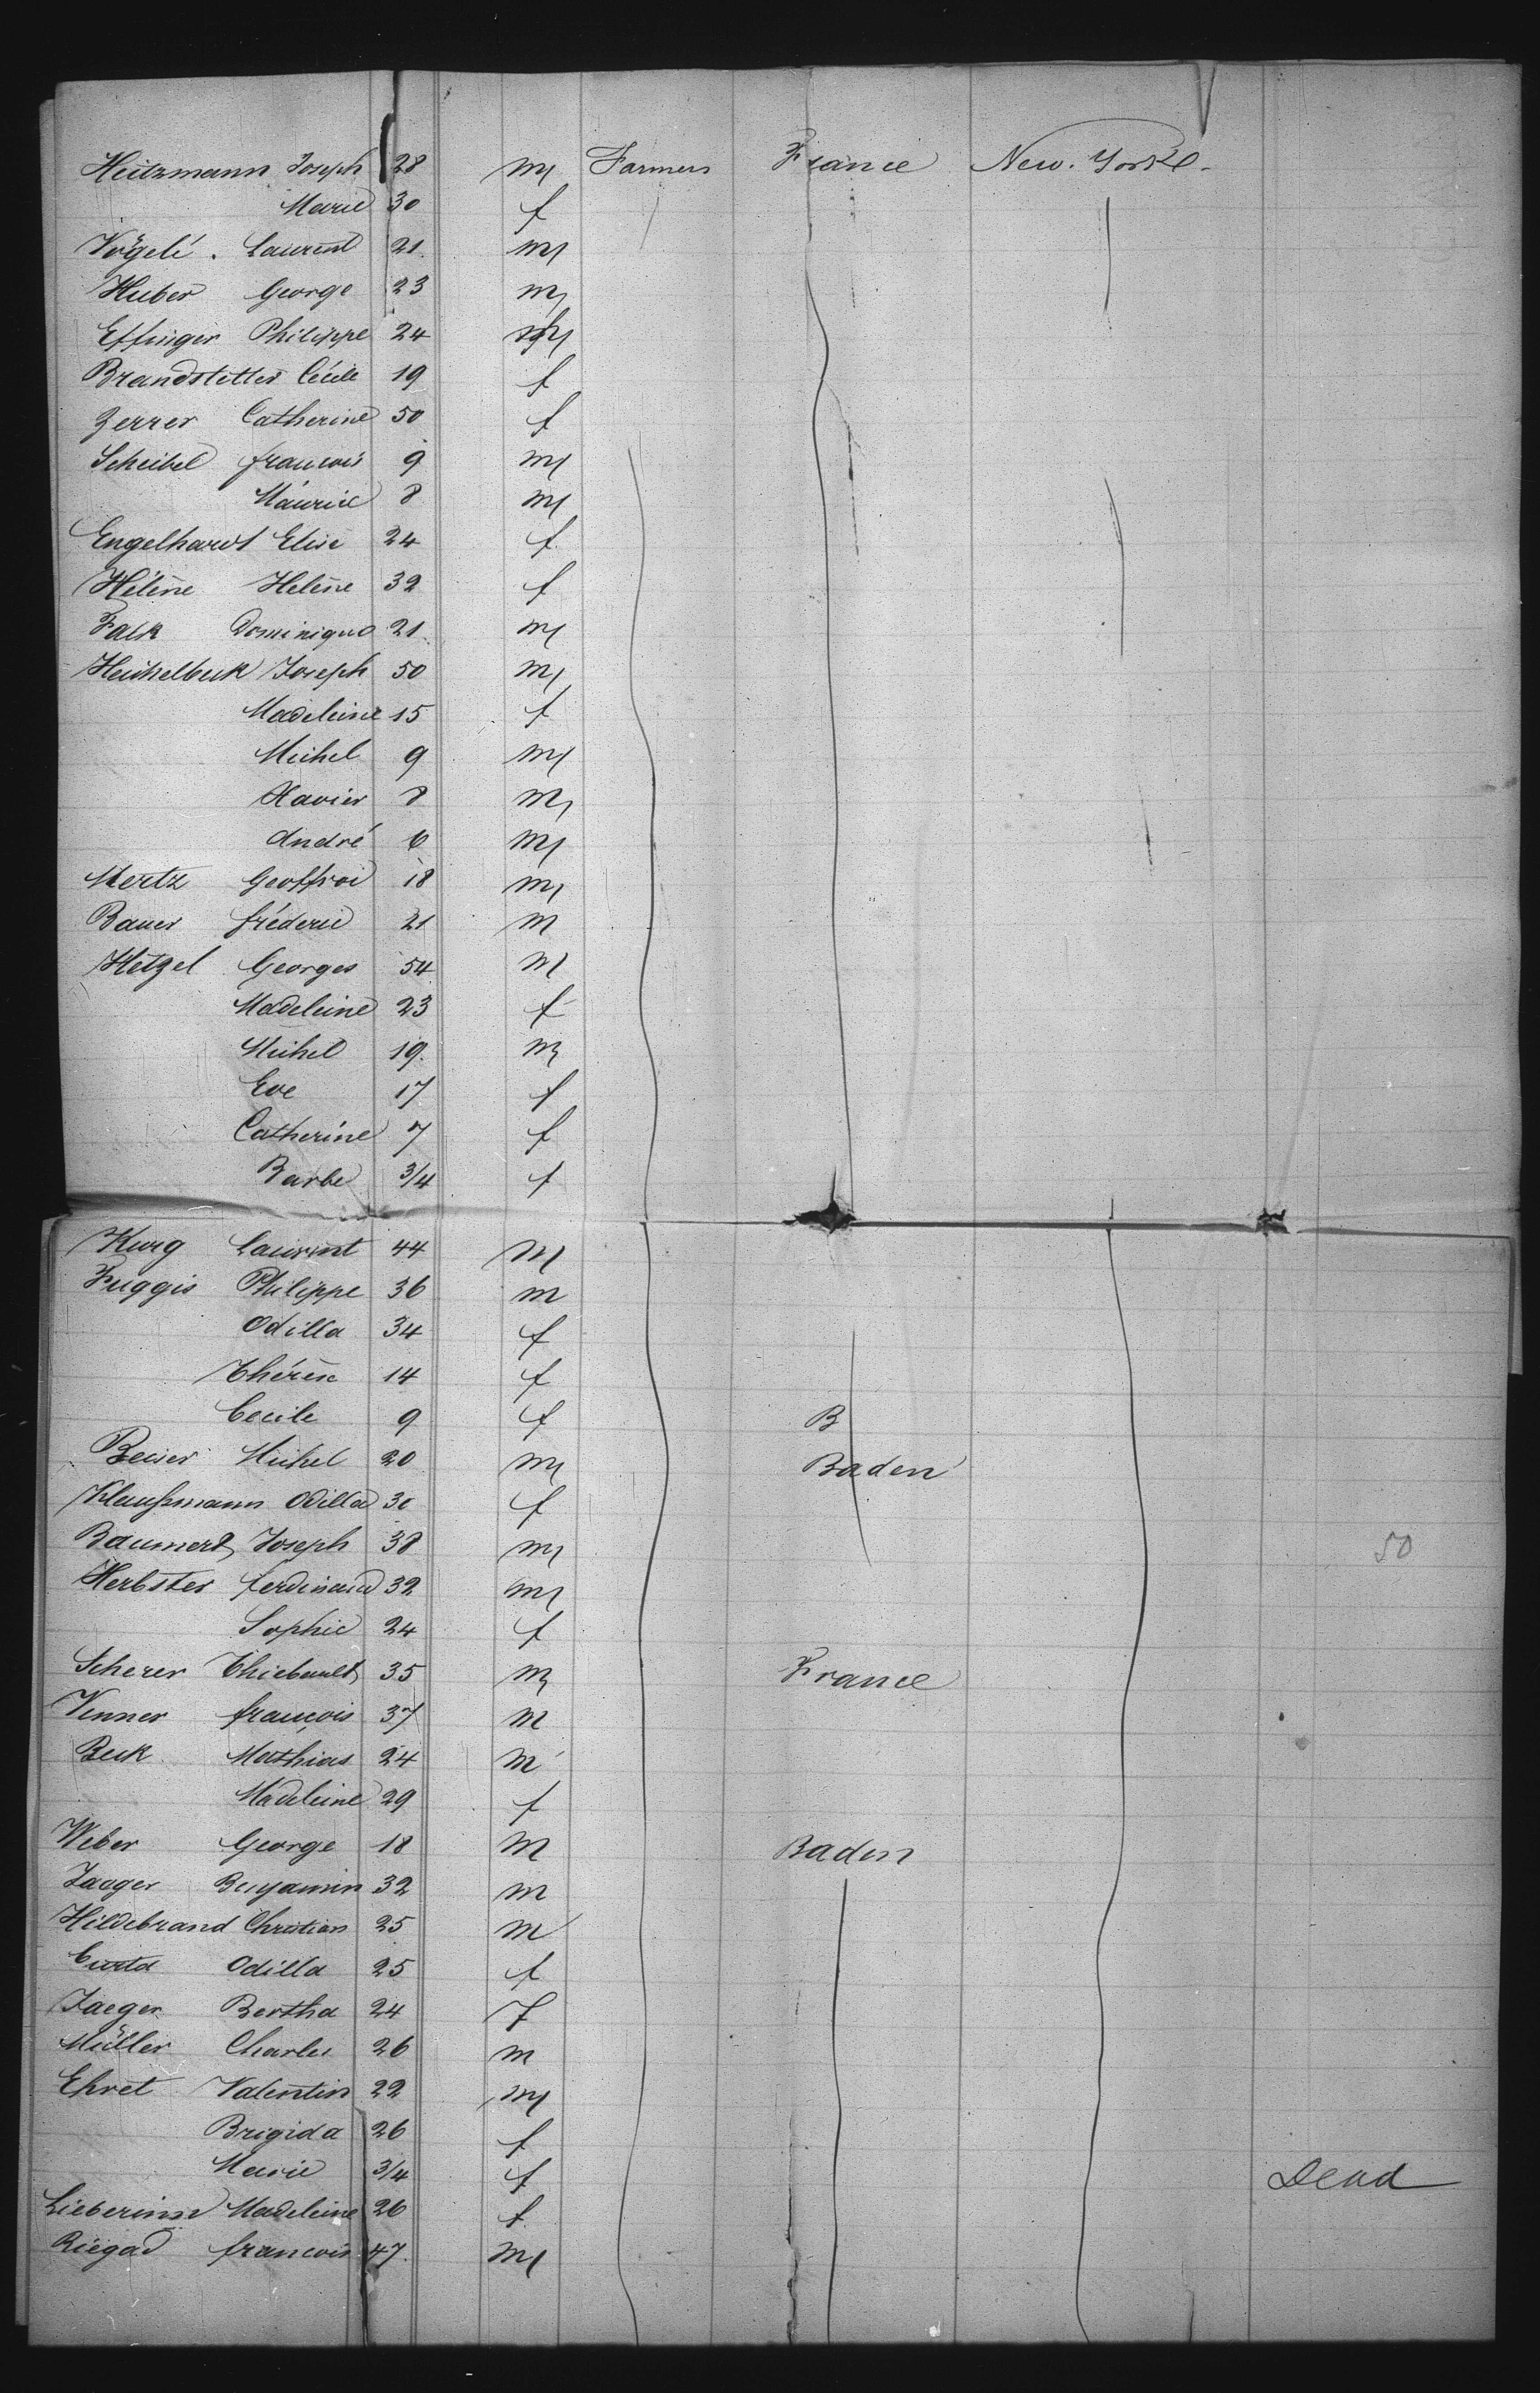 Heitzmann Joseph 28 m Farmers France New-York
Marie 30 f
Vögelé Laurent 21 m
Huber George 23 m
Effinger Philippe 24 m
Brandstetter Cécile 19 f
Zerrer Catherine 50 f
Scheibel francois 9 m
Maurice 8 m
Engelhardt Elise 24 f
Hélène Helène 32 f
Falk Dominique 21 m
Joseph 50 m
Madeleine 15 f
Michel 9 m
Xavier 8 m
André 6 m
Mertz Geoffroi 18 m
Bauer fréderic 21 m
Hetzel Georges 54 m
Madeleine 23 f
Michel 19 m
Eve 17 f
Catherine 7 f
Barbe 3/4 f
Laurent 44 m
Philippe 36 m
Odilla 34 f
Thérèse 14 f
Cecile 9 f B
Michel 20 m Baden
Klaußmann Odilla 30 f
Baumert Joseph 38 m 50
Herbster ferdinand 32 m
Sophie 24 f
Scherer Thiebault 35 m France
Venner françois 37 m
Beck Mathias 24 m
Madeleine 29 f
Weber George 18 m Baden
Jaeger Benjamin 32 m
Hildebrand Christian 25 m
Odilla 25 f
Jaeger Bertha 24 f
Müller Charles 26 m
Ehret Valentin 22 m
Brigida 26 f
Marie 3/4 f Dead
Madeleine 26 f
francois 47 m